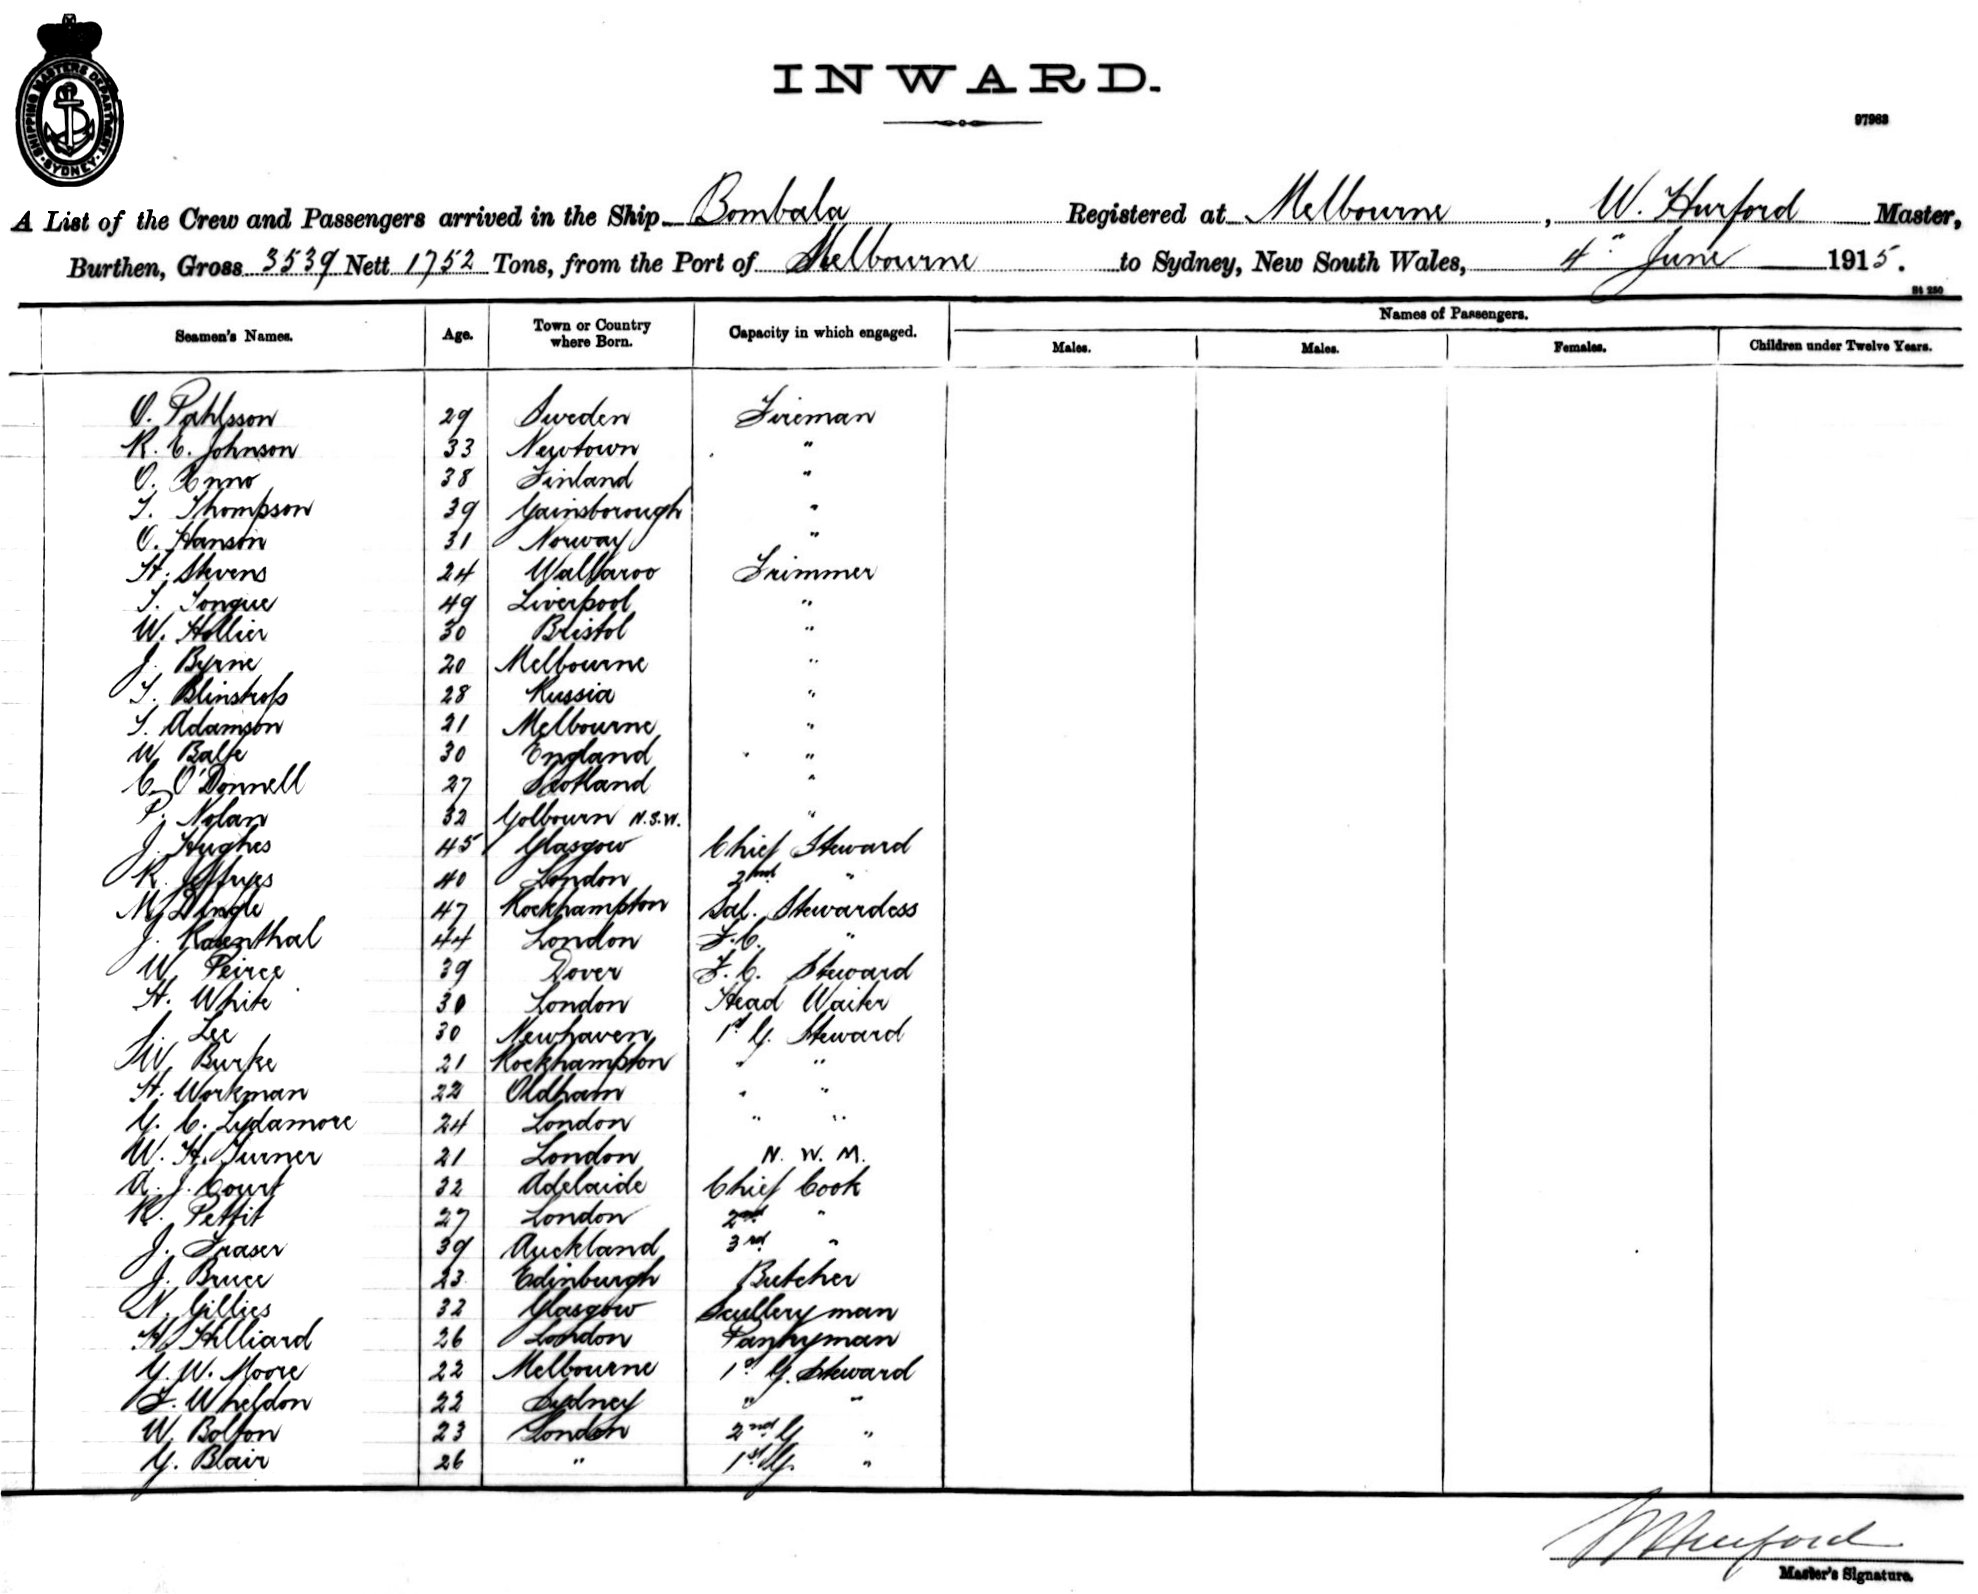 SHIPPING MASTERS DEPARTMENT. SYDNEY
INWARD.
97963
A List of the Crew and Passengers arrived in the Ship Bombala Registered at Melbourne, W. Hurford Master,
Burthen, Gross 3539 Nett 1752 Tons, from the Port of Melbourne to Sydney, New South Wales, 4" June 1915.
St 250
Names of Passengers.
Seamen's Names. Age. Town or Country where Born. Capacity in which engaged. Males. Males. Females. Children under Twelve Years.
O. Pahlsson 29 Sweden Fireman
R. C. Johnson 33 Newtown "
O. Enno 38 Finland "
T. Thompson 39 Gainsborough "
O. Hanson 31 Norway "
H. Stevens 24 Wallaroo Trimmer
T. Tongue 49 Liverpool "
W. Hollier 30 Bristol "
J. Byrne 20 Melbourne "
T. Blinstrops 28 Russia "
T. Adamson 21 Melbourne "
W. Balfe 30 England "
C. O'Donnell 27 Scotland "
P. Nolan 32 Golbourn N.S.W. "
J. Hughes 45 Glasgow Chief Steward
R. Jeffryes 40 London 2nd "
M. Dingle 47 Rockhampton Sal. Stewardess
J. Rosenthal 44 London F.C. "
W. Peirce 39 Dover F.C. Steward
H. White 30 London Head Waiter
J. Lee 30 Newhaven 1st G. Steward
W. Burke 21 Rockhampton " "
H. Workman 22 Oldham " "
G. C. Lydamore 24 London " "
W. H. Turner 21 London N. W. M.
A. J. Court 32 Adelaide Chief Cook
R. Pettit 27 London 2nd "
J. Fraser 39 Auckland 3rd "
J. Bruce 23 Edinburgh Butcher
N. Gillies 32 Glasgow Scullery man
H. Hilliard 26 London Pantryman
G. W. Moore 22 Melbourne 1st G. Steward
F. Wheldon 22 Sydney " "
W. Bolton 23 London 2nd G "
G. Blair 26 " 1st G. "
W Hurford
Master's Signature.